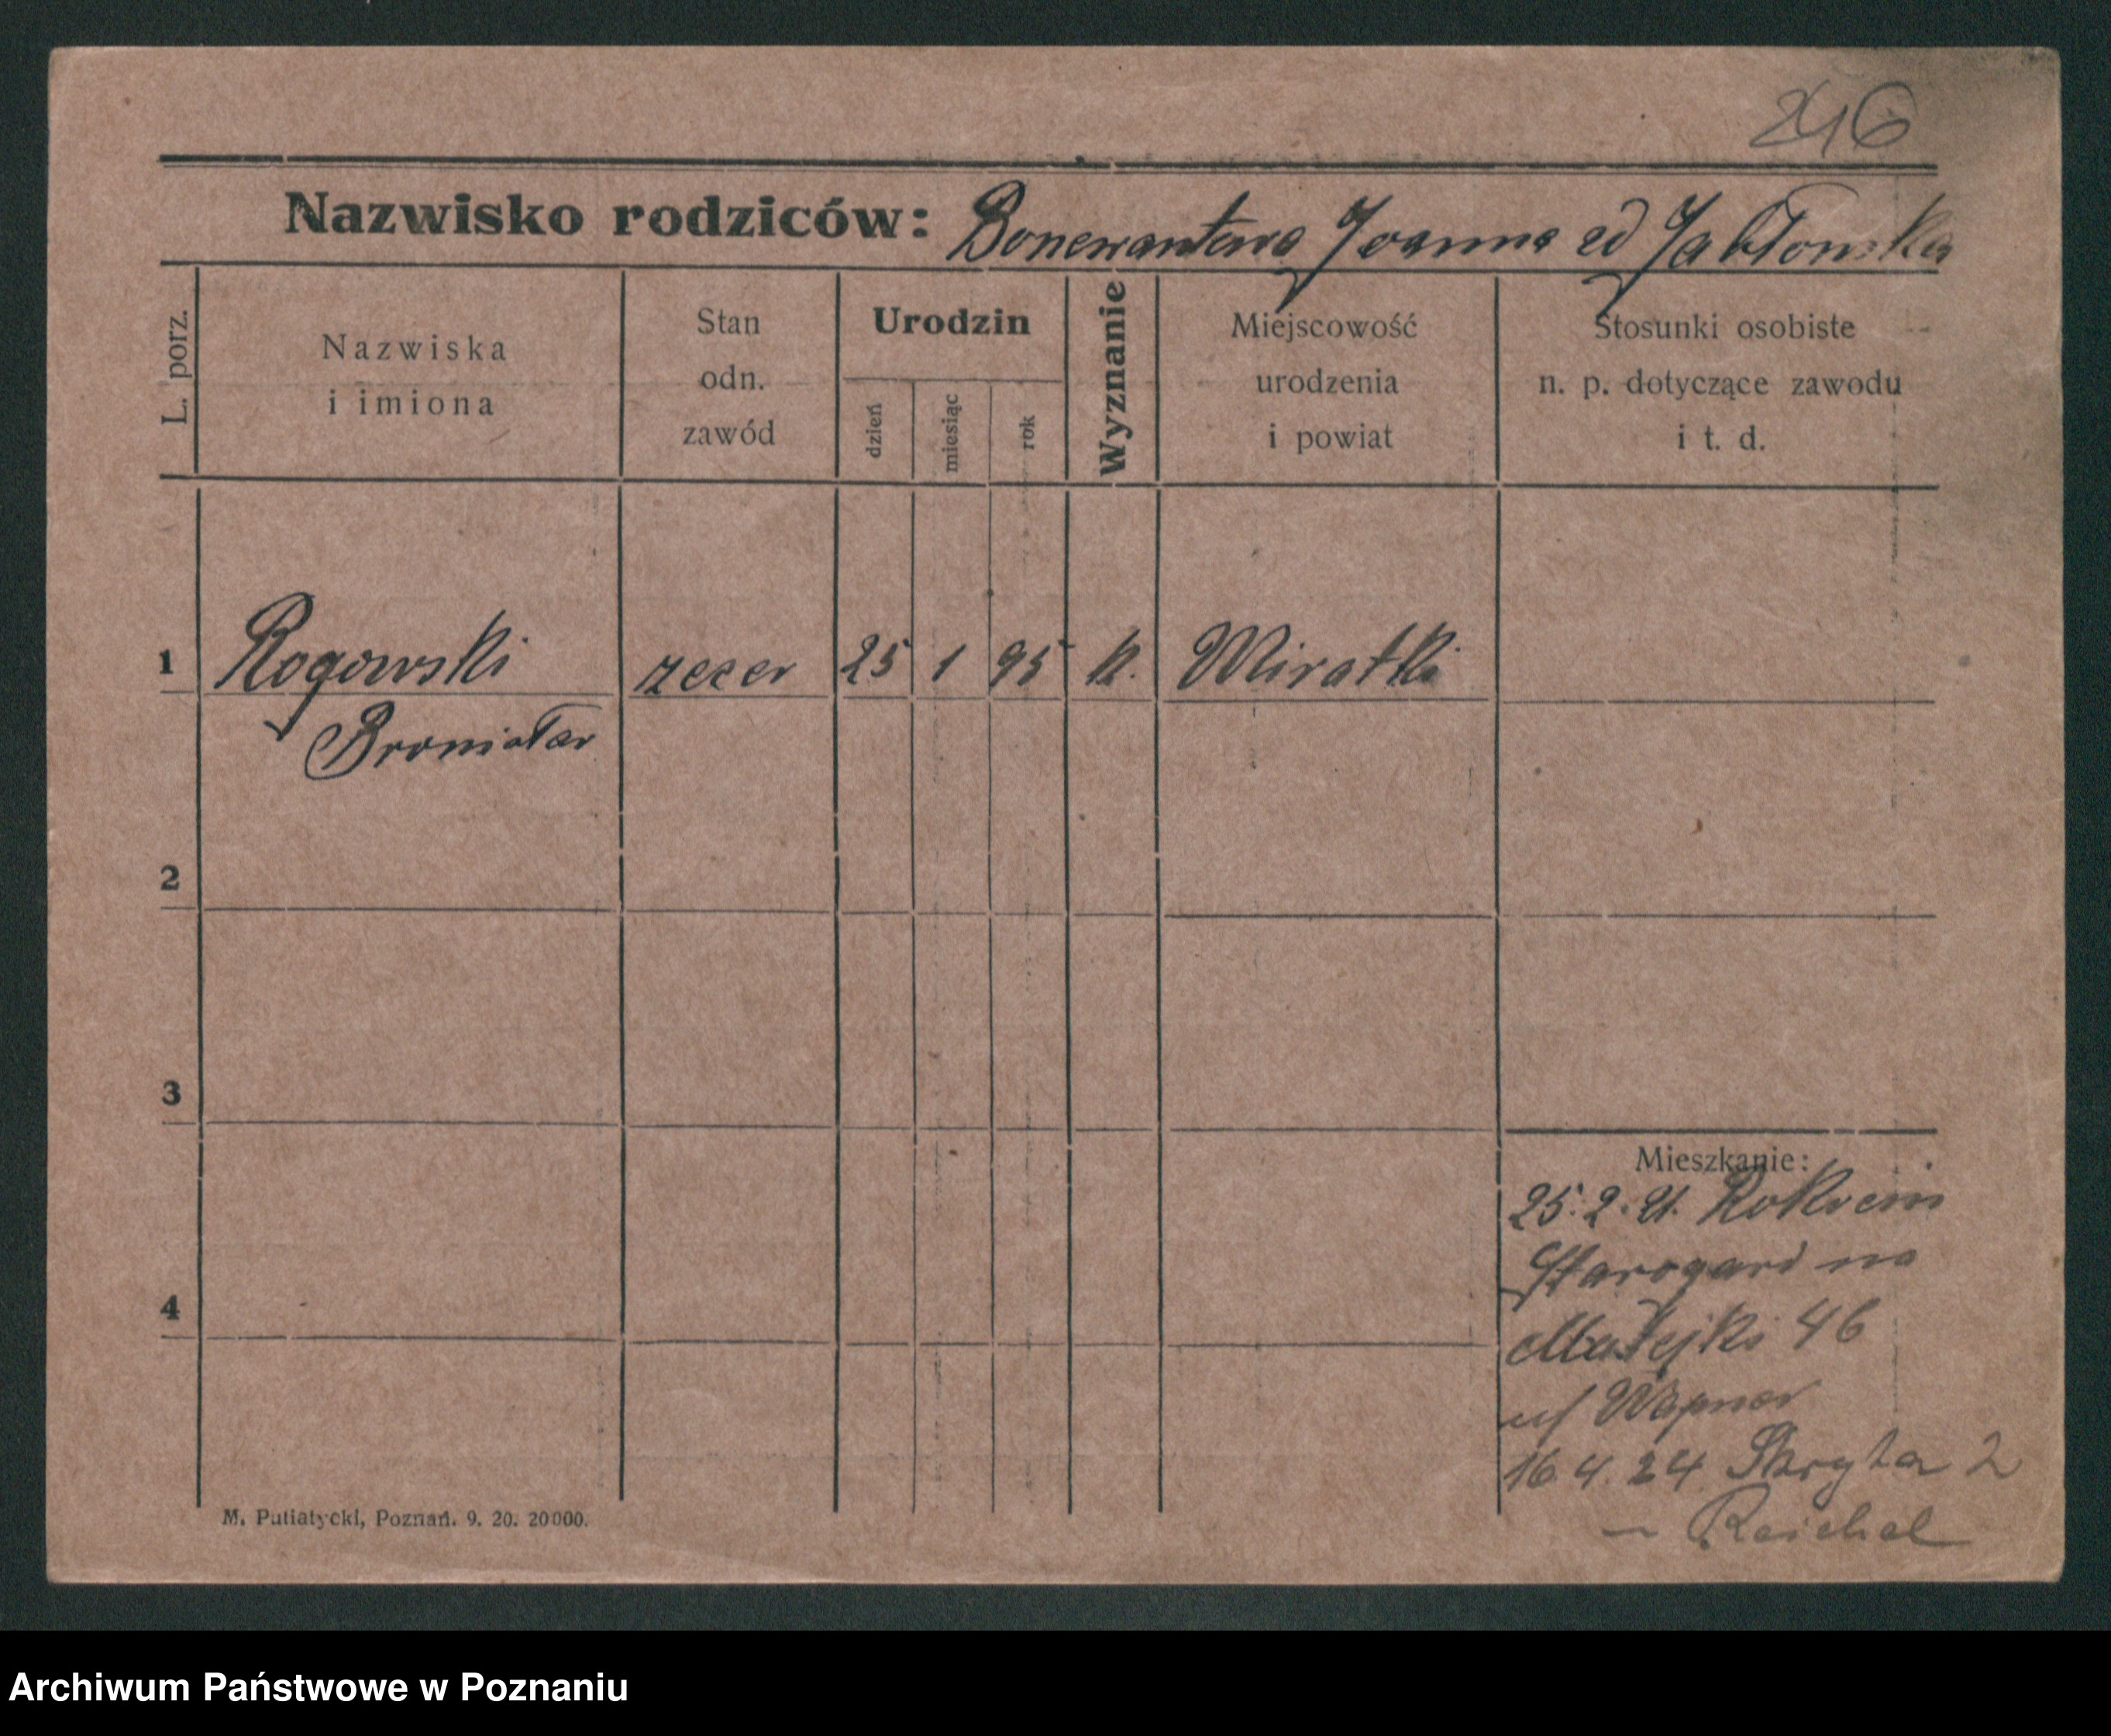 246
Nazwisko rodziców: Bonewantura Joanna zd Jabłońska
L. porz.
Nazwiska
i imiona
Stan
odn.
zawód
Urodzin
dzień
miesiąc
rok
Wyznanie
Miejscowość
urodzenia
i powiat
Stosunki osobiste
n. p. dotyczące zawodu
i t. d.
1 Rogowski zecer 25 1 95 k. Miratki
Bronisław
2
3
4
Mieszkanie:
25.2.21.
Starogard na
Matejki 46
Wapner
16.4.24. Skryta 2
Reichel
M. Putiatycki, Poznań. 9. 20. 20000.
Archiwum Państwowe w Poznaniu